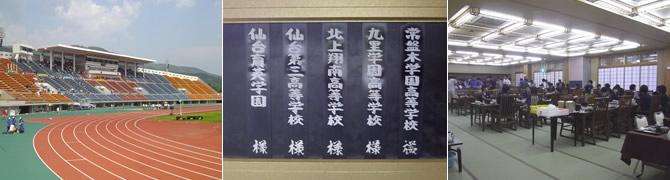 常盤木学園高等学校 様
九里学園高等学校 様
北上翔南高等学校 様
仙台第三高等学校 様
仙台育英学園 様